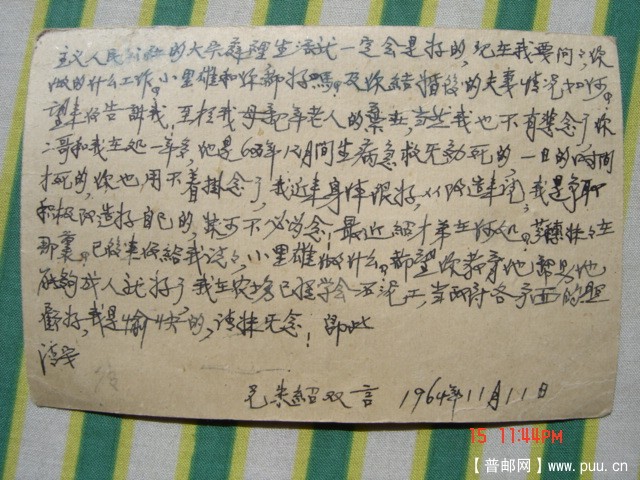 主义人民公社的大家庭里生活我一定会是好的,现在我要问问你
做的什么工作,小里雄和你都好吗?及你结婚后的夫妻情况如何,
望来信告诉我!至于我母亲年老人的弃世,当然我也不有挂念了,你
二哥和我在一处一年多,他是63年12月间生病急救无効死的,一日的时间
死的,你也用不着掛念了,我近来身体很好,从改造来说,我是争取
积极改造好自己的,
不必的念!最近绍才弟在何处,妹妹在
那里。已後来你给我谈谈,小里雄做什么,都望你教育他帮助他
能夠成人就好了,我在农场已经学会泥工,当
各方面的照
顧好,我是愉快的,请妹无念!即此
清安
兄 绍双言 1964年11月11日
15 11:44PM
【普邮网】www.puu.cn